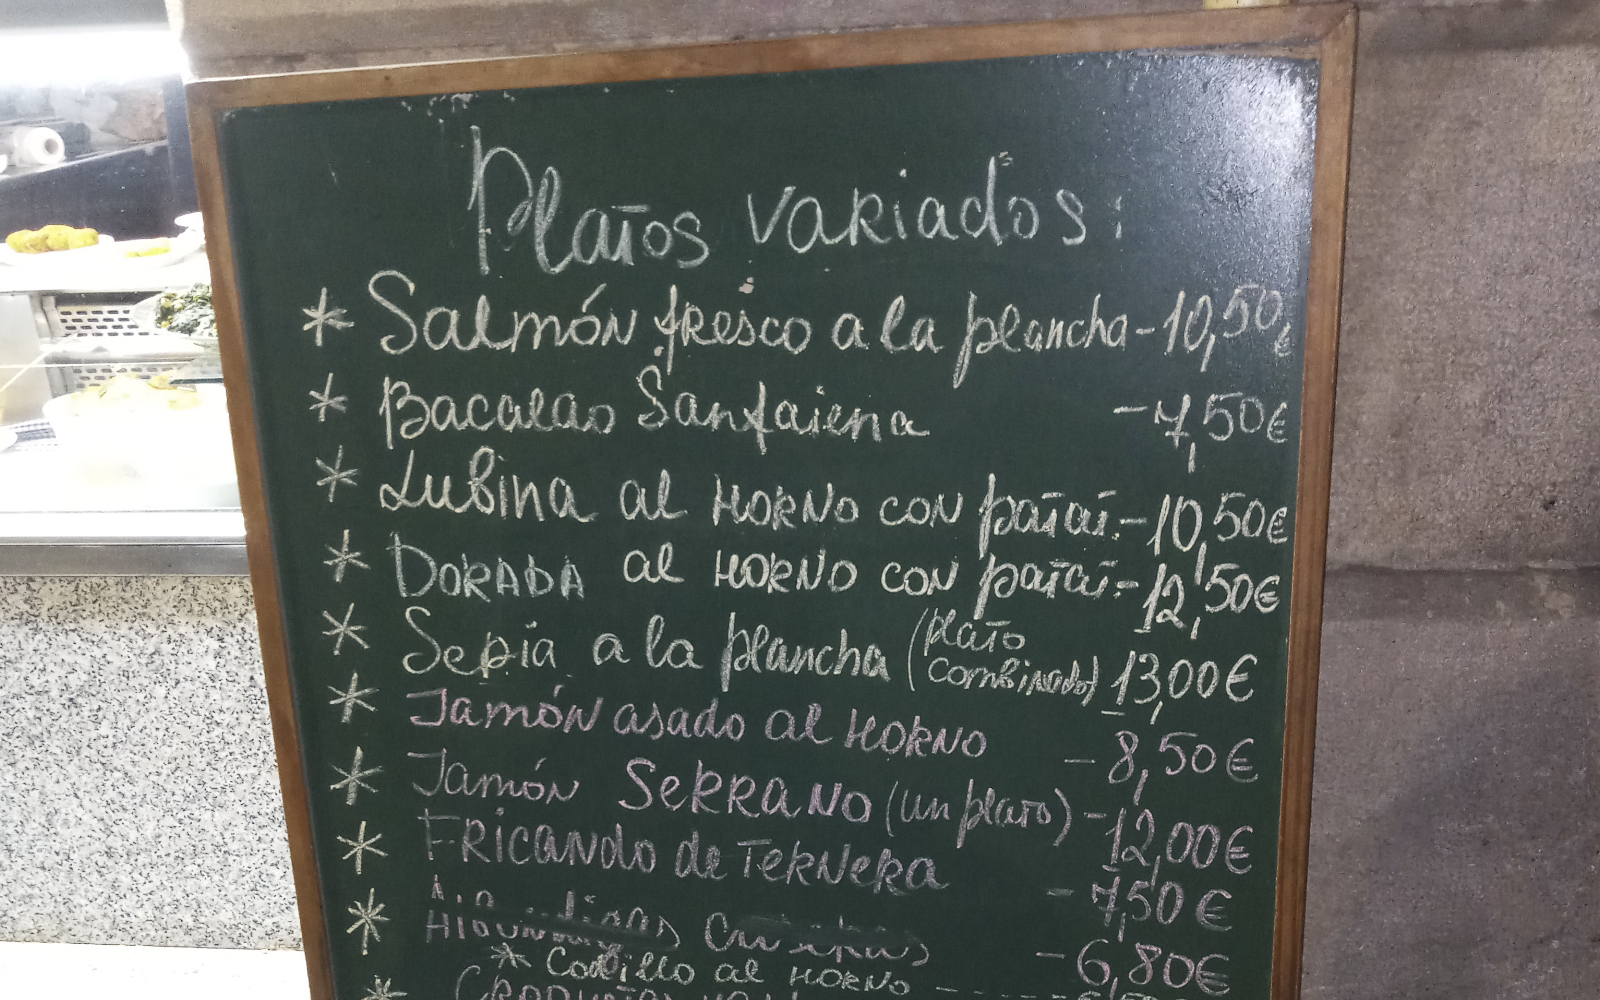 Platos variados:
* Salmón fresco a la plancha - 10,50€
* Bacalao Sanfaiena - 7,50€
* Lubina al HORNO CON patat. - 10,50€
* DORADA al HORNO CON patat. - 12,50€
* Sepia a la plancha (plato combinado) 13,00€
* Jamón asado al HORNO - 8,50€
* Jamón SERRANO (un plato) - 12,00€
* FRICANDO de TERNERA - 7,50€
* Albondigas - 6,80€
* Codillo al HORNO
*